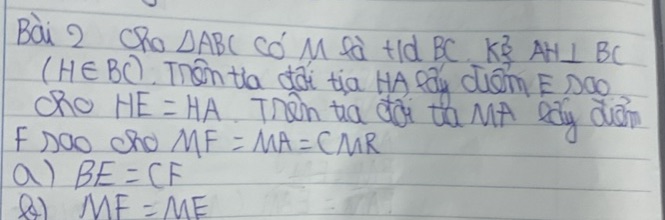 Bài 2 Cho ΔABC có M là tđ BC. Kẻ AH ⊥ BC
(H∈BC). Trên tia đối tia HA lấy điểm E sao
cho HE = HA. Trên tia đối tia MA lấy điểm
F sao cho MF = MA = CMR
a) BE = CF
b) MF = ME